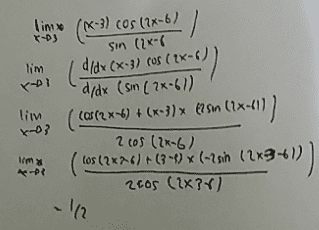 lim x→3 ((x-3) cos (2x-6) / sin (2x-6)
lim x→3 (d/dx (x-3) cos (2x-6) / d/dx (sin (2x-6)))
lim x→3 (cos(2x-6) + (x-3) x (-2sin (2x-6)) / 2 cos (2x-6))
lim x→3 (cos(2x3-6) + (3-3) x (-2sin (2x3-6)) / 2cos (2x3-6))
= 1/2